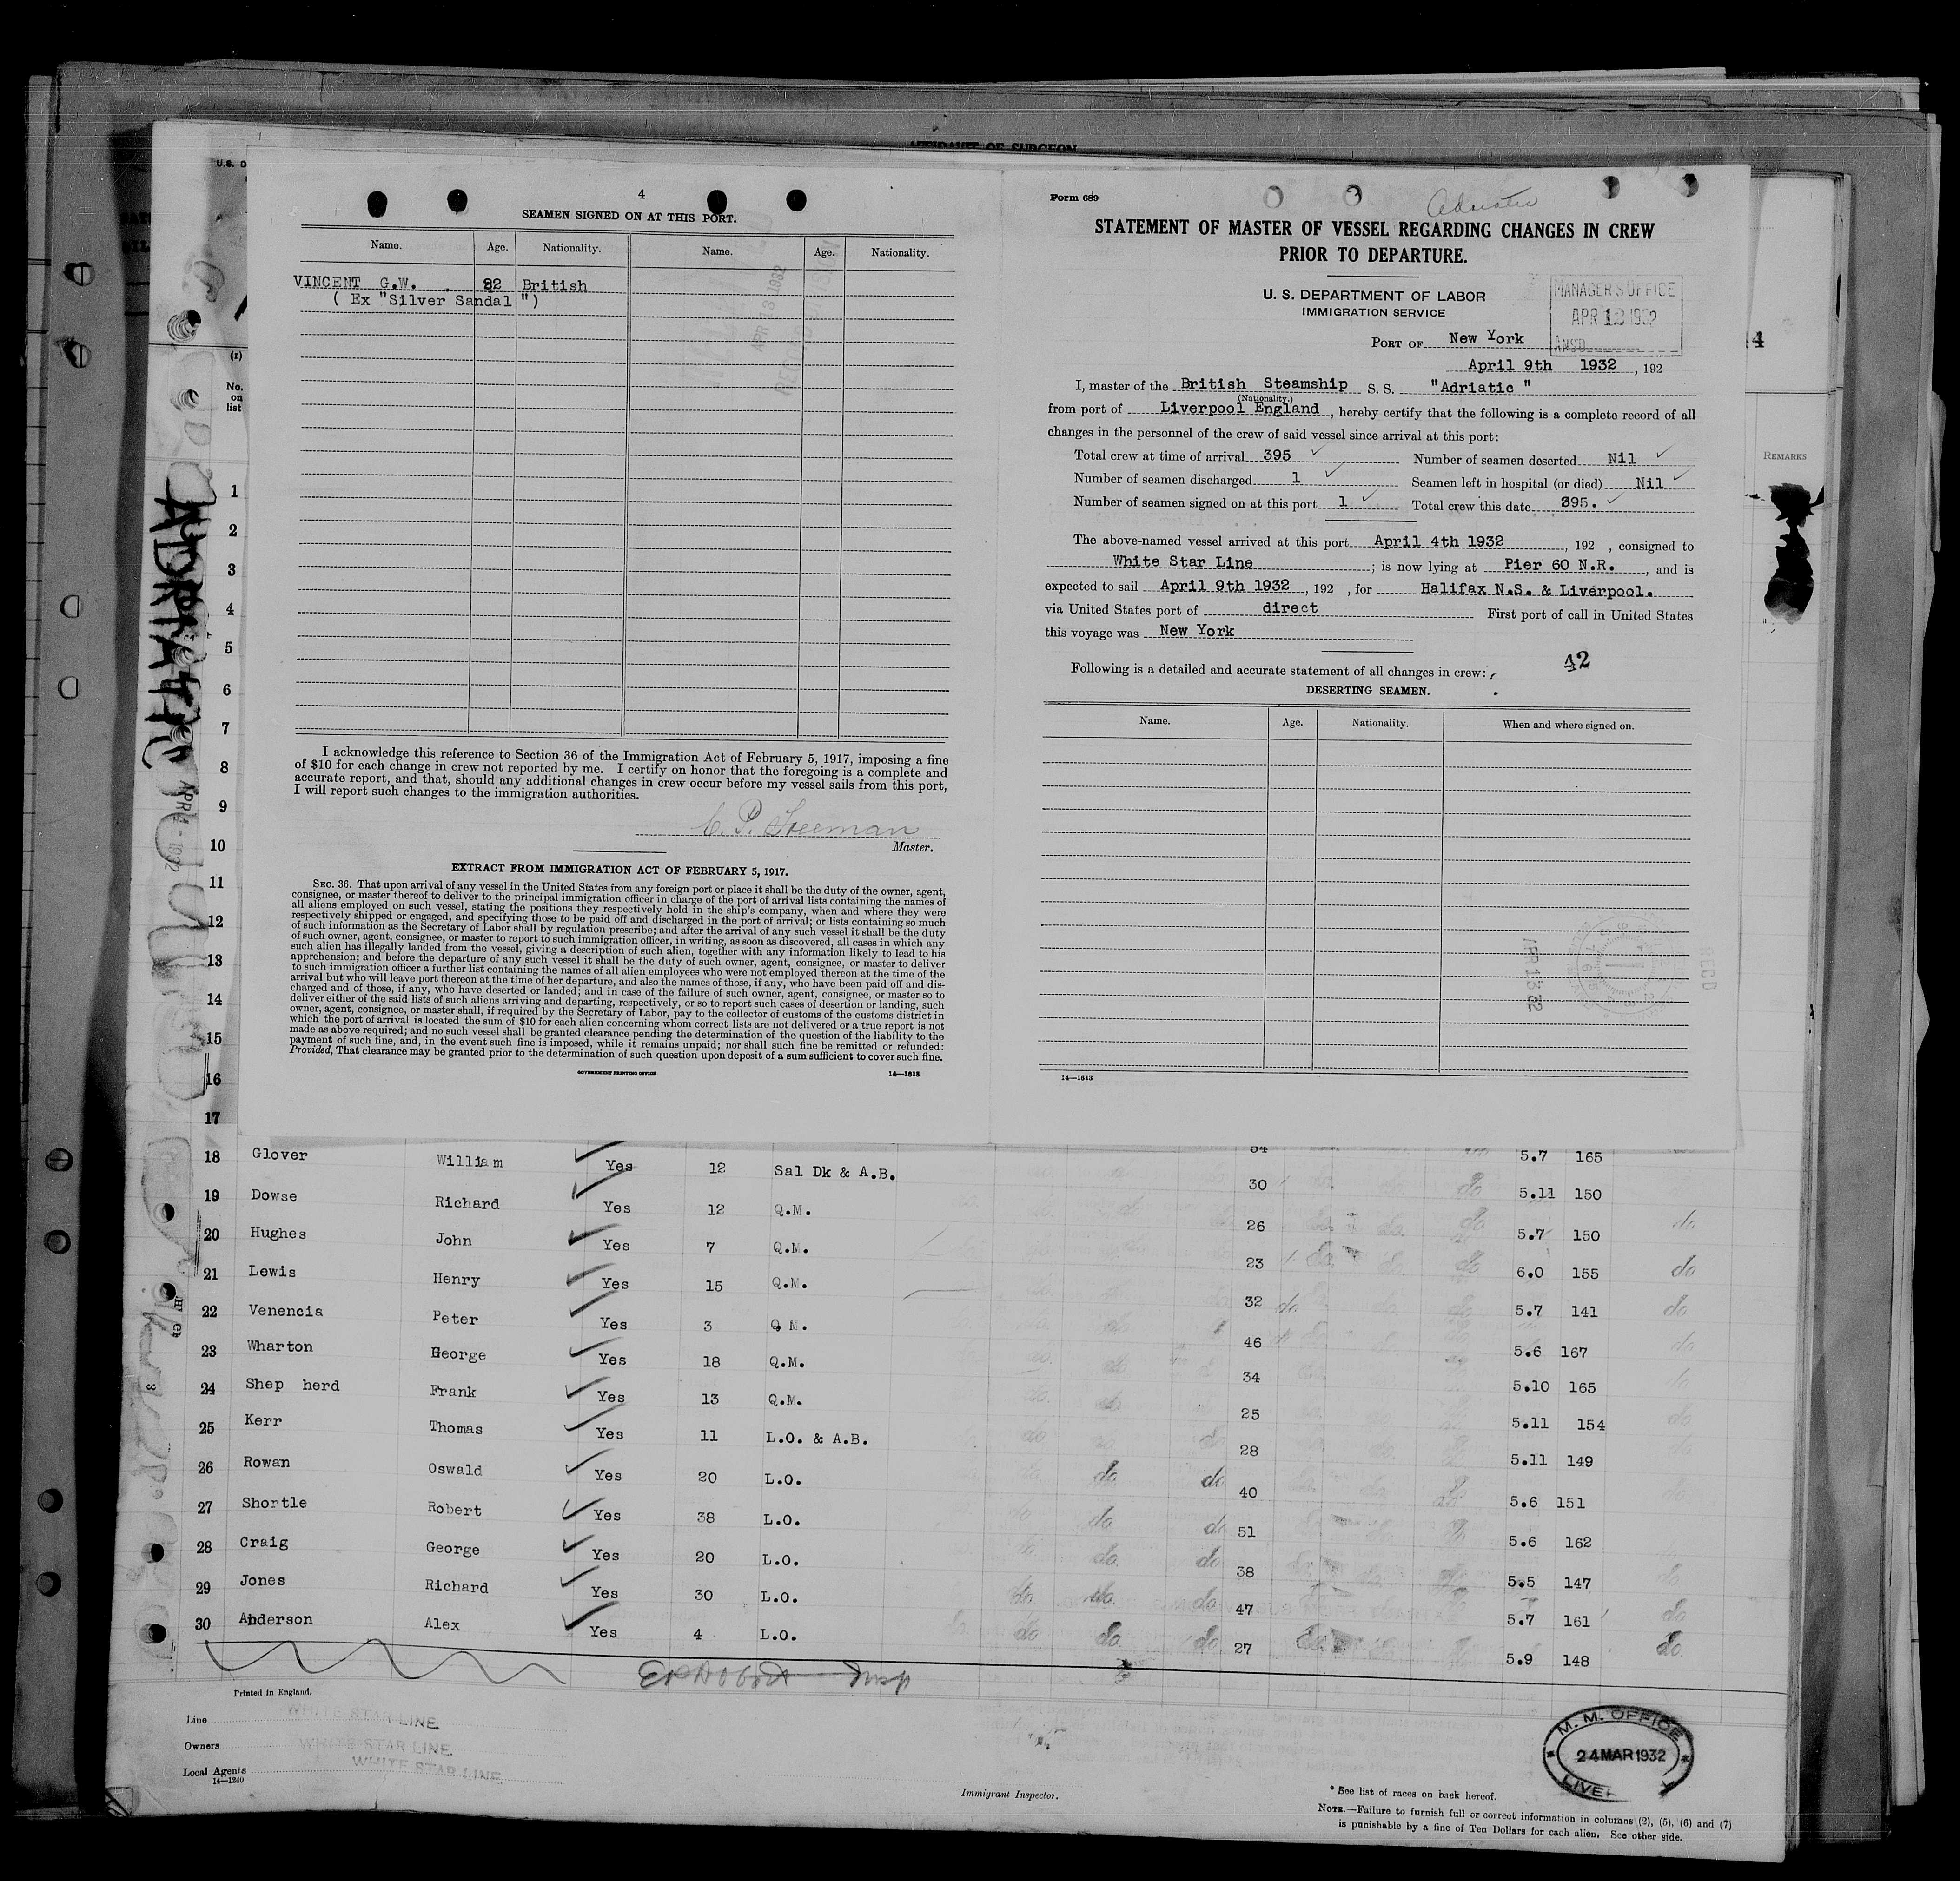 AFFIDAVIT OF SURGEON
U. S. D
4
SEAMEN SIGNED ON AT THIS PORT.
Name. Age. Nationality. Name. Age. Nationality.
VINCENT G.W. 22 British
( Ex "Silver Sandal ")
APR 13 1932
I acknowledge this reference to Section 36 of the Immigration Act of February 5, 1917, imposing a fine
of $10 for each change in crew not reported by me. I certify on honor that the foregoing is a complete and
accurate report, and that, should any additional changes in crew occur before my vessel sails from this port,
I will report such changes to the immigration authorities.
C. P. Freeman
Master.
EXTRACT FROM IMMIGRATION ACT OF FEBRUARY 5, 1917.
SEC. 36. That upon arrival of any vessel in the United States from any foreign port or place it shall be the duty of the owner, agent,
consignee, or master thereof to deliver to the principal immigration officer in charge of the port of arrival lists containing the names of
all aliens employed on such vessel, stating the positions they respectively hold in the ship's company, when and where they were
respectively shipped or engaged, and specifying those to be paid off and discharged in the port of arrival; or lists containing so much
of such information as the Secretary of Labor shall by regulation prescribe; and after the arrival of any such vessel it shall be the duty
of such owner, agent, consignee, or master to report to such immigration officer, in writing, as soon as discovered, all cases in which any
such alien has illegally landed from the vessel, giving a description of such alien, together with any information likely to lead to his
apprehension; and before the departure of any such vessel it shall be the duty of such owner, agent, consignee, or master to deliver
to such immigration officer a further list containing the names of all alien employees who were not employed thereon at the time of the
arrival but who will leave port thereon at the time of her departure, and also the names of those, if any, who have been paid off and dis-
charged and of those, if any, who have deserted or landed; and in case of the failure of such owner, agent, consignee, or master so to
deliver either of the said lists of such aliens arriving and departing, respectively, or so to report such cases of desertion or landing, such
owner, agent, consignee, or master shall, if required by the Secretary of Labor, pay to the collector of customs of the customs district in
which the port of arrival is located the sum of $10 for each alien concerning whom correct lists are not delivered or a true report is not
made as above required; and no such vessel shall be granted clearance pending the determination of the question of the liability to the
payment of such fine, and, in the event such fine is imposed, while it remains unpaid; nor shall such fine be remitted or refunded:
Provided, That clearance may be granted prior to the determination of such question upon deposit of a sum sufficient to cover such fine.
GOVERNMENT PRINTING OFFICE 14—1613
Form 689
Adriatic
STATEMENT OF MASTER OF VESSEL REGARDING CHANGES IN CREW
PRIOR TO DEPARTURE.
U. S. DEPARTMENT OF LABOR
IMMIGRATION SERVICE
MANAGER'S OFFICE
APR 12 1932
ANS'D
PORT OF New York
April 9th 1932 , 192
I, master of the British Steamship S. S. "Adriatic "
(Nationality.)
from port of Liverpool England , hereby certify that the following is a complete record of all
changes in the personnel of the crew of said vessel since arrival at this port:
Total crew at time of arrival 395 Number of seamen deserted Nil
Number of seamen discharged 1 Seamen left in hospital (or died) Nil
Number of seamen signed on at this port 1 Total crew this date 395.
The above-named vessel arrived at this port April 4th 1932 , 192 , consigned to
White Star Line ; is now lying at Pier 60 N.R. , and is
expected to sail April 9th 1932 , 192 , for Halifax N.S. & Liverpool.
via United States port of direct First port of call in United States
this voyage was New York
42
Following is a detailed and accurate statement of all changes in crew:
DESERTING SEAMEN.
Name. Age. Nationality. When and where signed on.
APR 13 32
REC'D
14—1613
(1)
No.
on
list
REMARKS
ADRIATIC
APR 4 - 1932
1
2
3
4
5
6
7
8
9
10
11
12
13
14
15
16
17
18 Glover William Yes 12 Sal Dk & A.B. 34 5.7 165
19 Dowse Richard Yes 12 Q.M. 30 do 5.11 150
20 Hughes John Yes 7 Q.M. 26 do 5.7 150 do
21 Lewis Henry Yes 15 Q.M. 23 do 6.0 155 do
22 Venencia Peter Yes 3 Q M. 32 do 5.7 141 do
23 Wharton George Yes 18 Q.M. 46 5.6 167 do
24 Shep herd Frank Yes 13 Q.M. 34 5.10 165
25 Kerr Thomas Yes 11 L.O. & A.B. 25 5.11 154 do
26 Rowan Oswald Yes 20 L.O. do do 28 5.11 149
27 Shortle Robert Yes 38 L.O. do do 40 5.6 151
28 Craig George Yes 20 L.O. do do 51 5.6 162
29 Jones Richard Yes 30 L.O. do do do 38 5.5 147
30 Anderson Alex Yes 4 L.O. do do do 47 5.7 161 do
27 5.9 148 do
Printed in England.
Line WHITE STAR LINE.
Owners WHITE STAR LINE.
Local Agents WHITE STAR LINE.
14—1240
Immigrant Inspector.
M. M. OFFICE
24 MAR 1932
* See list of races on back hereof.
NOTE.—Failure to furnish full or correct information in columns (2), (5), (6) and (7)
is punishable by a fine of Ten Dollars for each alien. See other side.